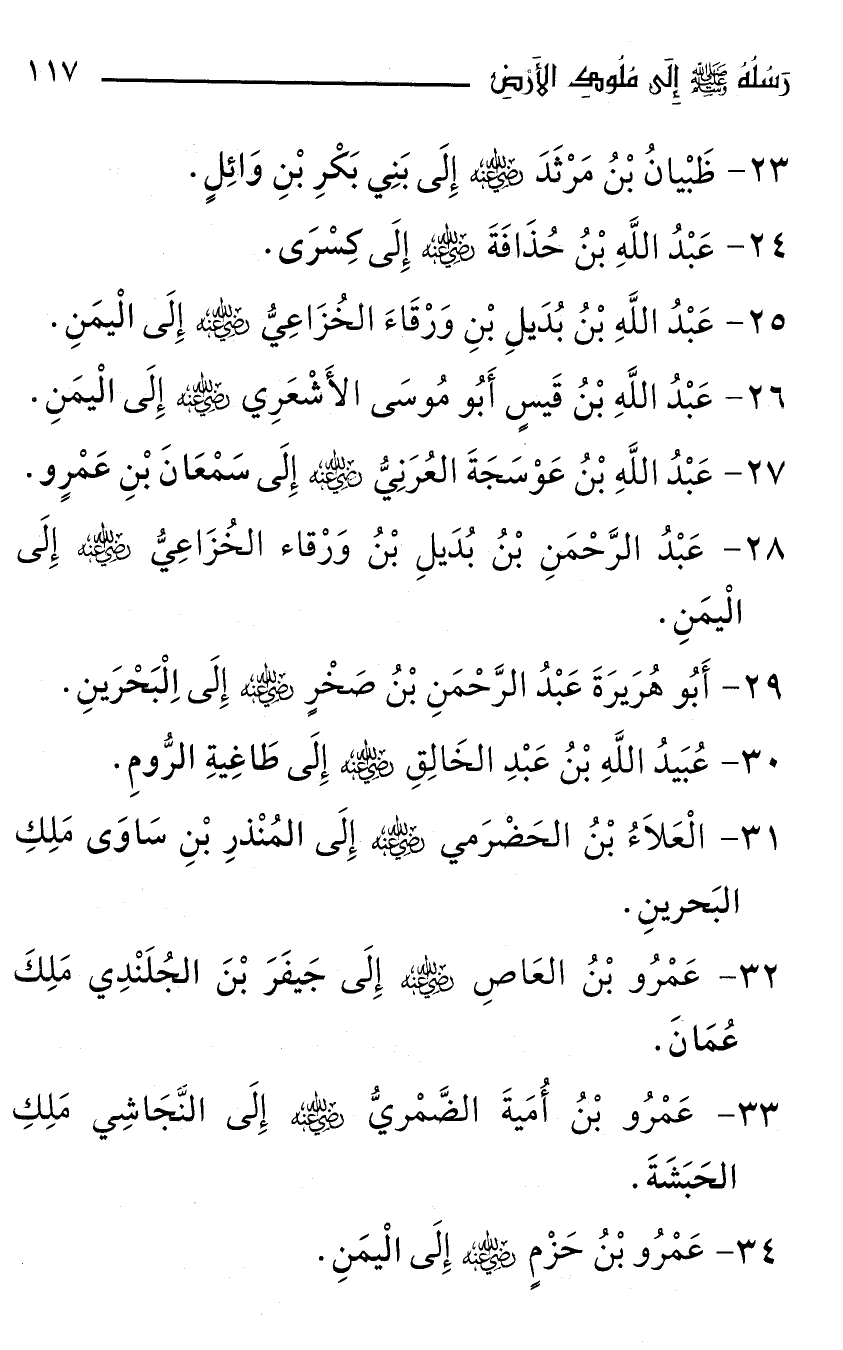 رَسُلُهُ ﷺ إِلَى مُلُوكِ الأَرْضِ ١١٧
٢٣- ظَبْيانُ بْنُ مَرْثَدَ رَضِيَ اللَّهُ عَنْهُ إِلَى بَنِي بَكْرِ بْنِ وَائِلٍ.
٢٤- عَبْدُ اللَّهِ بْنُ حُذَافَةَ رَضِيَ اللَّهُ عَنْهُ إِلَى كِسْرَى.
٢٥- عَبْدُ اللَّهِ بْنُ بُدَيلِ بْنِ وَرْقَاءَ الخُزَاعِيُّ رَضِيَ اللَّهُ عَنْهُ إِلَى الْيمَنِ.
٢٦- عَبْدُ اللَّهِ بْنُ قَيسٍ أَبُو مُوسَى الأَشْعَرِي رَضِيَ اللَّهُ عَنْهُ إِلَى الْيمَنِ.
٢٧- عَبْدُ اللَّهِ بْنُ عَوْسَجَةَ العُرَنِيُّ رَضِيَ اللَّهُ عَنْهُ إِلَى سَمْعَانَ بْنِ عَمْرٍو.
٢٨- عَبْدُ الرَّحْمَنِ بْنُ بُدَيلِ بْنُ وَرْقاء الخُزَاعِيُّ رَضِيَ اللَّهُ عَنْهُ إِلَى
الْيمَنِ.
٢٩- أَبُو هُرَيرَةَ عَبْدُ الرَّحْمَنِ بْنُ صَخْرٍ رَضِيَ اللَّهُ عَنْهُ إِلَى اِلْبَحْرَينِ.
٣٠- عُبَيدُ اللَّهِ بْنُ عَبْدِ الخَالِقِ رَضِيَ اللَّهُ عَنْهُ إِلَى طَاغِيةِ الرُّومِ.
٣١- الْعَلاَءُ بْنُ الحَضْرَمي رَضِيَ اللَّهُ عَنْهُ إِلَى المُنْذرِ بْنِ سَاوَى مَلِكِ
البَحرينِ.
٣٢- عَمْرُو بْنُ العَاصِ رَضِيَ اللَّهُ عَنْهُ إِلَى جَيفَرَ بْنَ الجُلَنْدِي مَلِكَ
عُمَانَ.
٣٣- عَمْرُو بْنُ أُمَيةَ الضَّمْريُّ رَضِيَ اللَّهُ عَنْهُ إِلَى النَّجَاشِي مَلِكِ
الحَبَشَةَ.
٣٤- عَمْرُو بْنُ حَزْمٍ رَضِيَ اللَّهُ عَنْهُ إِلَى الْيمَنِ.